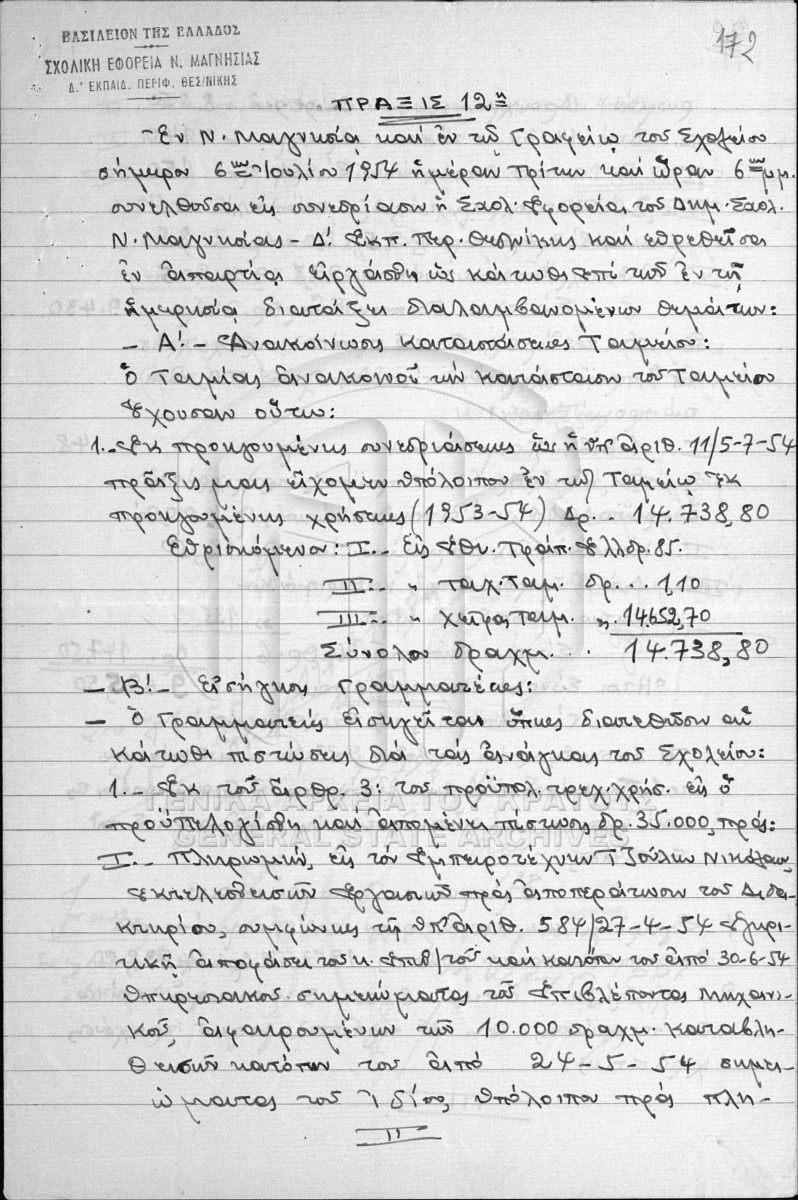 172
ΒΑΣΙΛΕΙΟΝ ΤΗΣ ΕΛΛΑΔΟΣ
ΣΧΟΛΙΚΗ ΕΦΟΡΕΙΑ Ν. ΜΑΓΝΗΣΙΑΣ
Δ.' ΕΚΠΑΙΔ. ΠΕΡΙΦ. ΘΕΣ/ΝΙΚΗΣ
ΠΡΑΞΙΣ 12η
Ἐν Ν. Μαγνησίᾳ καὶ ἐν τῷ Γραφείῳ τοῦ Σχολείου
σήμερον 6ην Ἰουλίου 1954 ἡμέραν Τρίτην καὶ ὥραν 6ην μμ.
συνελθοῦσα εἰς συνεδρίασιν ἡ Σχολ. Ἐφορεία τοῦ Δημ. Σχολ.
Ν. Μαγνησίας – Δ'. Ἐκπ. Περ. Θεσ/νίκης καὶ εὑρεθεῖσα
ἐν ἀπαρτίᾳ εἰργάσθη ὡς κάτωθι ἐπὶ τῶν ἐν τῇ
ἡμερησίᾳ διατάξει διαλαμβανομένων θεμάτων:
– Α'. – Ἀνακοίνωσις καταστάσεως Ταμείου:
Ὁ Ταμίας ἀνακοινοῖ τὴν κατάστασιν τοῦ Ταμείου
ἔχουσαν οὕτω:
1.– Ἐκ προηγουμένης συνεδριάσεως ὡς ἡ ὑπ' ἀριθ. 11/5-7-54
πρᾶξίς μας εἴχομεν ὑπόλοιπον ἐν τῷ Ταμείῳ ἐκ
προηγουμένης χρήσεως (1953-54) Δρ. . 14.738,80
Εὑρισκόμενον: Ι.– Εἰς Ἐθν. Τράπ. Ἑλλ δρ. 85.
ΙΙ.– " ταχ. Ταμ. δρ. . . 1,10
ΙΙΙ.– " χεῖρας Ταμ. " 14.652,70
Σύνολον δραχμ. . . 14.738,80
– Β'. – Εἰσήγησις Γραμματέως:
– Ὁ Γραμματεὺς εἰσηγεῖται ὅπως διατεθῶσιν αἱ
κάτωθι πιστώσεις διὰ τὰς ἀνάγκας τοῦ Σχολείου:
1.– Ἐκ τοῦ ἄρθρ. 3: τοῦ προϋπολ. τρεχ. χρήσ. εἰς ὃ
προϋπελογίσθη καὶ ἀπομένει πίστωσις δρ. 35.000, πρός:
Ι.– Πληρωμήν, εἰς τὸν Ἐμπειροτέχνην Τζούλην Νικόλαον,
ἐκτελεσθεισῶν ἐργασιῶν πρὸς ἀποπεράτωσιν τοῦ Διδα-
κτηρίου, συμφώνως τῇ ὑπ' ἀριθ. 584/27-4-54 ἐγκρι-
τικῇ ἀποφάσει τοῦ κ. Ἐπιθ/τοῦ καὶ κατόπιν τοῦ ἀπὸ 30-6-54
ὑπηρεσιακοῦ σημειώματος τοῦ Ἐπιβλέποντος Μηχανι-
κοῦ, ἀφαιρουμένων τῶν 10.000 δραχμ. καταβλη-
θεισῶν κατόπιν τοῦ ἀπὸ 24-5-54 σημει-
ώματος τοῦ Ἰδίου, ὑπόλοιπον πρὸς πλη-
ΓΕΝΙΚΑ ΑΡΧΕΙΑ ΤΟΥ ΚΡΑΤΟΥΣ
GENERAL STATE ARCHIVES